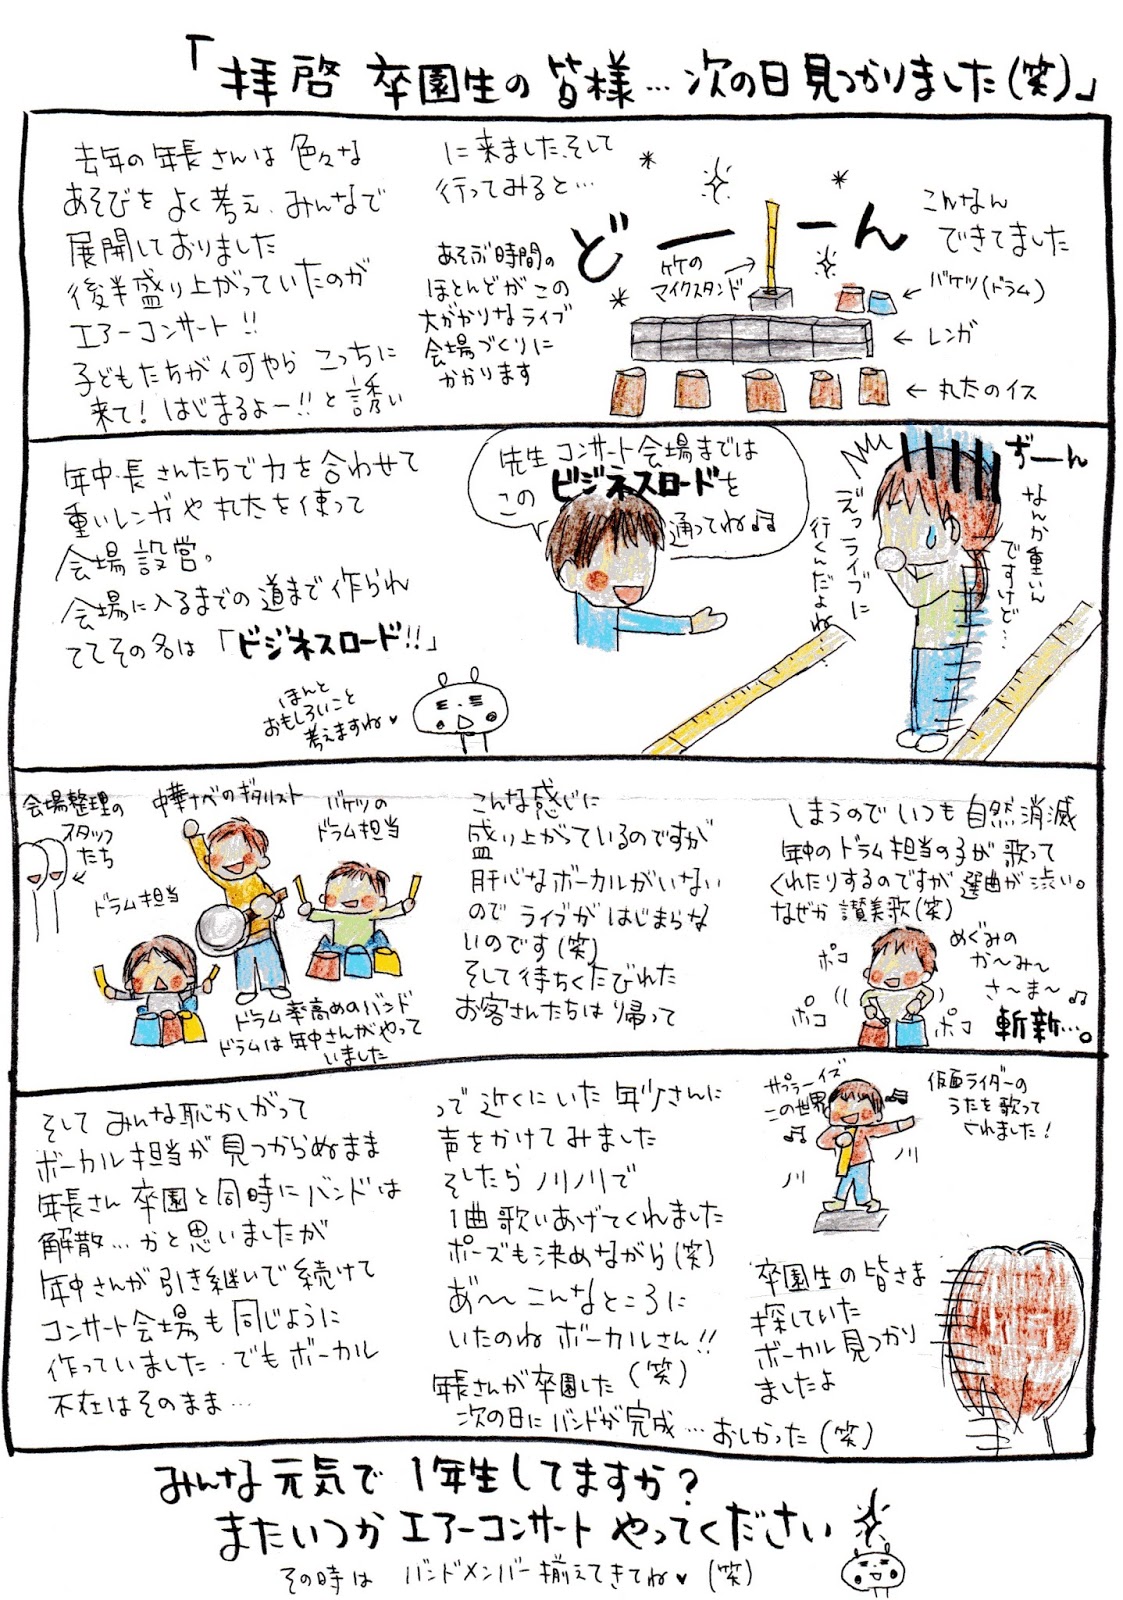 「拝啓 卒園生の皆様…次の日見つかりました(笑)」
去年の年長さんは色々な
あそびをよく考え、みんなで
展開しておりました
後半盛り上がっていたのが
エアーコンサート!!
子どもたちが何やら こっちに
来て！はじまるよー!!と誘い
に来ました、そして
行ってみると…
あそぶ時間の
ほとんどがこの
大がかりなライブ
会場づくりに
かかります
どーーーん
竹の
マイクスタンド
こんなん
できてました
バケツ(ドラム)
レンガ
丸たのイス
年中・長さんたちで力を合わせて
重いレンガや丸太を使って
会場設営。
会場に入るまでの道まで作られ
ててその名は「ビジネスロード!!」
ほんと
おもしろいこと
考えますね♥
先生 コンサート会場までは
この ビジネスロードを
通ってね♫
えっライブに
行くんだよね…
ずーん
なんか重いん
ですけど…
会場整理の
スタッフ
たち
中華ナベのギタリスト
バケツの
ドラム担当
ドラム担当
ドラム率高めのバンド
ドラムは年中さんがやって
いました
こんな感じに
盛り上がっているのですが
肝心なボーカルがいない
のでライブがはじまらな
いのです(笑)
そして待ちくたびれた
お客さんたちは帰って
しまうのでいつも自然消滅
年中のドラム担当の子が歌って
くれたりするのですが選曲が渋い。
なぜか讃美歌(笑)
ポコ
ポコ
ポコ
めぐみの
か〜み〜
さ〜ま〜♫
斬新…。
そしてみんな恥かしがって
ボーカル担当が見つからぬまま
年長さん卒園と同時にバンドは
解散…かと思いましたが
年中さんが引き継いで続けて
コンサート会場も同じように
作っていました。でもボーカル
不在はそのまま…
って近くにいた年少さんに
声をかけてみました
そしたらノリノリで
1曲歌いあげてくれました
ポーズも決めながら(笑)
あ〜〜こんなところに
いたのねボーカルさん!!
(笑)
年長さんが卒園した
次の日にバンドが完成…おしかった(笑)
サプラーイズ
この世界
♫
ノリ
ノリ
仮面ライダーの
うたを歌って
くれました！
卒園生の皆さま
探していた
ボーカル見つかり
ましたよ
みんな元気で1年生してますか？
またいつかエアーコンサートやってください
その時は バンドメンバー揃えてきてね♥(笑)